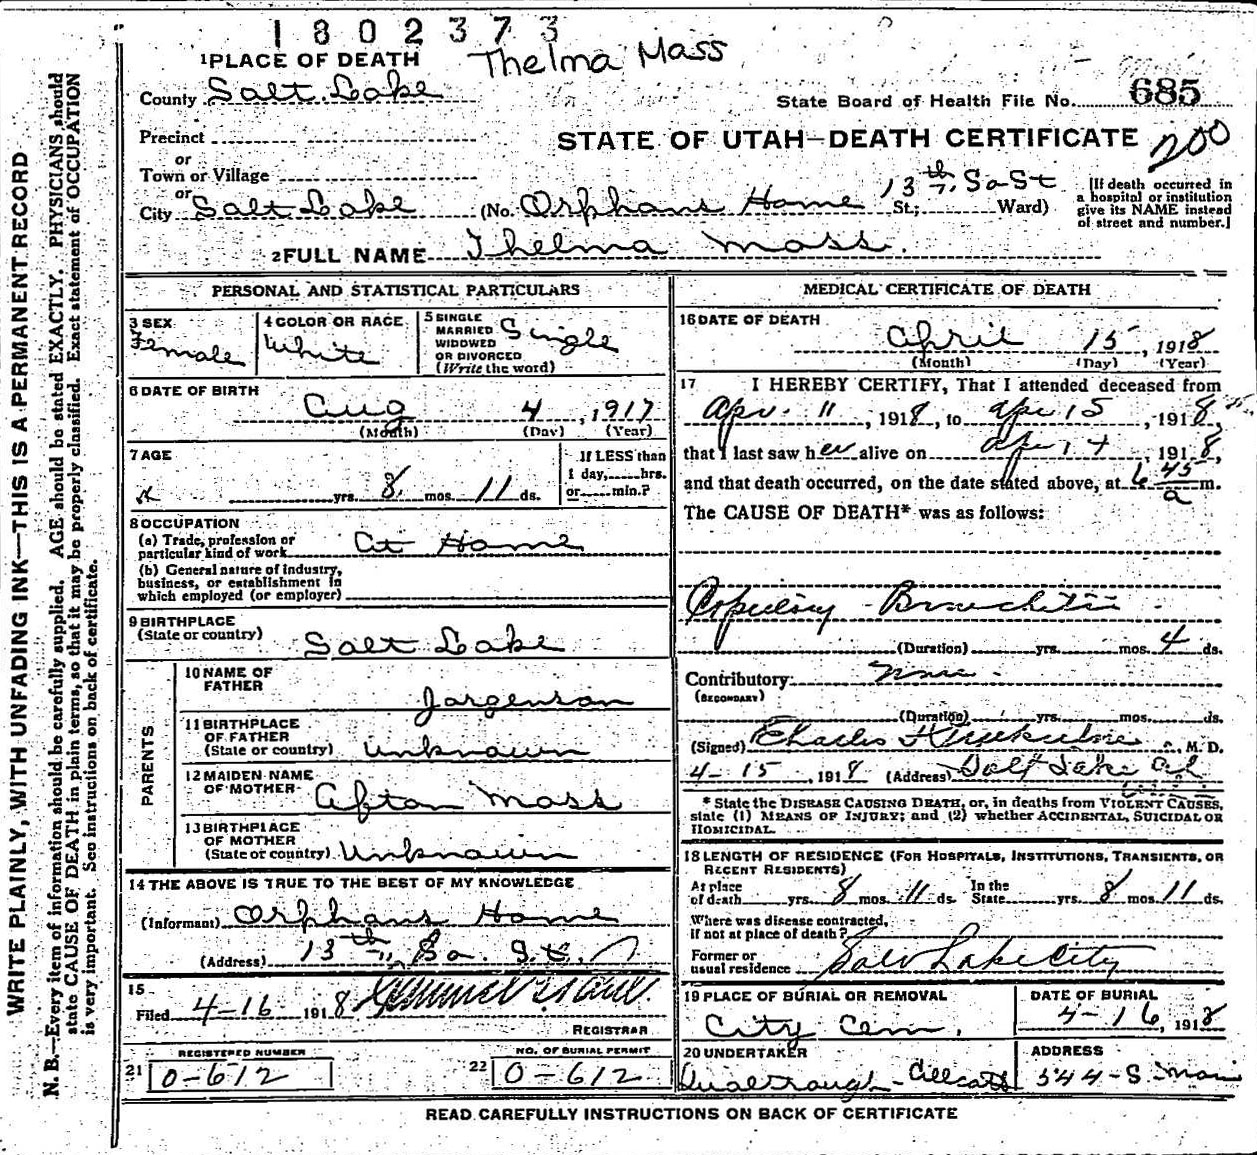 1802373
Thelma Mass
1 PLACE OF DEATH
County Salt Lake
State Board of Health File No. 685
Precinct
STATE OF UTAH—DEATH CERTIFICATE
200
or
Town or Village
or
City Salt Lake (No. Orphans Home 13th, So St St.; Ward)
[If death occurred in
a hospital or institution
give its NAME instead
of street and number.]
2 FULL NAME Thelma Mass.
PERSONAL AND STATISTICAL PARTICULARS
3 SEX
Female
4 COLOR OR RACE
White
5 SINGLE
MARRIED
WIDOWED
OR DIVORCED
(Write the word)
Single
6 DATE OF BIRTH
Aug 4, 1917
(Month) (Day) (Year)
7 AGE
yrs. 8 mos. 11 ds.
If LESS than
1 day, hrs.
or min.?
8 OCCUPATION
(a) Trade, profession or
particular kind of work At Home
(b) General nature of industry,
business, or establishment in
which employed (or employer)
9 BIRTHPLACE
(State or country) Salt Lake
PARENTS
10 NAME OF
FATHER Jorgenson
11 BIRTHPLACE
OF FATHER
(State or country) Unknown
12 MAIDEN NAME
OF MOTHER Afton Mass
13 BIRTHPLACE
OF MOTHER
(State or country) Unknown
14 THE ABOVE IS TRUE TO THE BEST OF MY KNOWLEDGE
(Informant) Orphans Home
(Address) 13th, So. St.
15
Filed 4-16 1918
REGISTRAR
21 REGISTERED NUMBER
0-612
22 NO. OF BURIAL PERMIT
0-612
MEDICAL CERTIFICATE OF DEATH
16 DATE OF DEATH
April 15, 1918
(Month) (Day) (Year)
17 I HEREBY CERTIFY, That I attended deceased from
Apr. 11, 1918, to Apr 15, 1918,
that I last saw her alive on Apr 14, 1918,
and that death occurred, on the date stated above, at 6 45 a m.
The CAUSE OF DEATH* was as follows:
Bronchitis
(Duration) yrs. mos. 4 ds.
Contributory None.
(SECONDARY)
(Duration) yrs. mos. ds.
(Signed) Charles M. D.
4-15, 1918 (Address) Salt Lake
* State the DISEASE CAUSING DEATH, or, in deaths from VIOLENT CAUSES,
state (1) MEANS OF INJURY; and (2) whether ACCIDENTAL, SUICIDAL OR
HOMICIDAL.
18 LENGTH OF RESIDENCE (FOR HOSPITALS, INSTITUTIONS, TRANSIENTS, OR
RECENT RESIDENTS)
At place
of death yrs. 8 mos. 11 ds. In the
State yrs. 8 mos. 11 ds.
Where was disease contracted,
if not at place of death?
Former or
usual residence Salt Lake City
19 PLACE OF BURIAL OR REMOVAL
City Cem.
DATE OF BURIAL
4-16, 1918
20 UNDERTAKER
ADDRESS
544-S-Main
READ CAREFULLY INSTRUCTIONS ON BACK OF CERTIFICATE
WRITE PLAINLY, WITH UNFADING INK—THIS IS A PERMANENT RECORD
N. B.—Every item of information should be carefully supplied. AGE should be stated EXACTLY. PHYSICIANS should
state CAUSE OF DEATH in plain terms, so that it may be properly classified. Exact statement of OCCUPATION
is very important. See instructions on back of certificate.